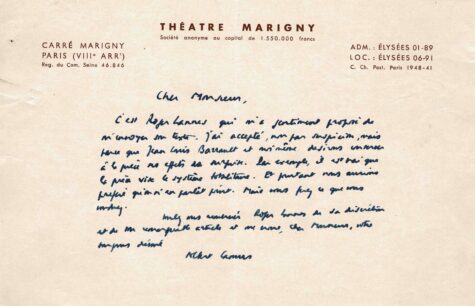 THÉATRE MARIGNY
Société anonyme au capital de 1.550.000 francs
CARRÉ MARIGNY
PARIS (VIIIᵉ ARRᵗ)
Reg. du Com. Seine 46.846
ADM. : ÉLYSÉES 01-89
LOC. : ÉLYSÉES 06-91
C. Ch. Post. Paris 1948-41
Cher Monsieur,
C'est Roger Lannes qui m'a gentiment proposé de
m'envoyer son texte. J'ai accepté, non par suspicion, mais
parce que Jean Louis Barrault et moi-même désirons conserver
à la pièce ses effets de surprise. Par exemple, il est vrai que
la pièce vise le système totalitaire. Et pourtant nous aurions
préféré qu'on n'en parlât point. Mais vous ferez ce que vous
voudrez.
remercié Roger Lannes de sa discrétion
et de son article et me croire, cher Monsieur, votre
dévoué
Albert Camus